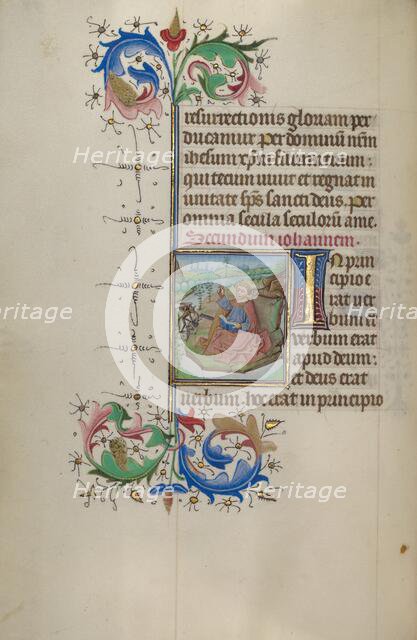 resurrectionis gloriam per
ducamur. per dominum nrm
ihesum xpm filium tuum:
qui tecum vivit et regnat in
unitate sps sancti deus. per
omnia secula seculorum ame.
Secundum iohannem.
In prin
cipio e
rat ver
bum &
verbum erat
apud deum:
et deus erat
verbum. hoc erat in principio
Heritage Heritage
Heritage
Heritage Heritage
Heritage
Heritage Heritage